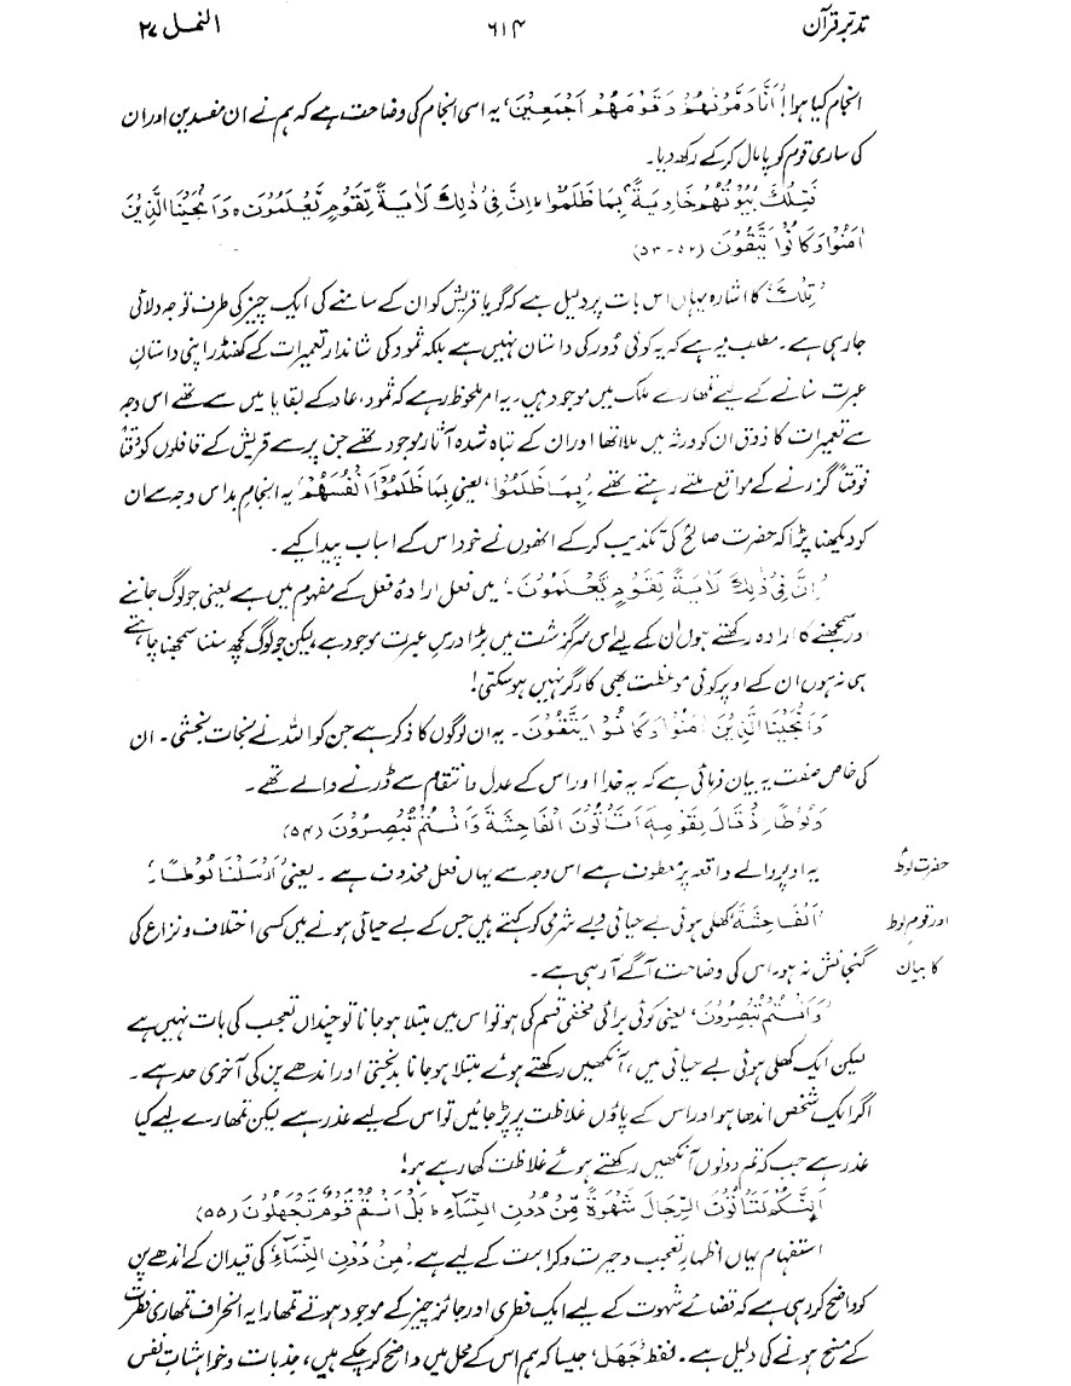 تدبرِ قرآن ۶۱۴ النمل ۲۷
انجام کیا ہوا! اَنَّا دَمَّرْنٰهُمْ وَقَوْمَهُمْ اَجْمَعِيْنَ، یہ اسی انجام کی وضاحت ہے کہ ہم نے ان مفسدین اور ان
کی ساری قوم کو پامال کر کے رکھ دیا۔
فَتِلْكَ بُيُوْتُهُمْ خَاوِيَةًۢ بِمَا ظَلَمُوْا ؕ اِنَّ فِيْ ذٰلِكَ لَاٰيَةً لِّقَوْمٍ يَّعْلَمُوْنَ ہ وَاَنْجَيْنَا الَّذِيْنَ
اٰمَنُوْا وَكَانُوْا يَتَّقُوْنَ (۵۲-۵۳)
’تِلْكَ‘ کا اشارہ یہاں اس بات پر دلیل ہے کہ گویا قریش کو ان کے سامنے کی ایک چیز کی طرف توجہ دلائی
جا رہی ہے۔ مطلب یہ ہے کہ یہ کوئی دُور کی داستان نہیں ہے بلکہ ثمود کی شاندار تعمیرات کے کھنڈر اپنی داستانِ
عبرت سنانے کے لیے تمھارے ملک میں موجود ہیں۔ یہ امر ملحوظ رہے کہ ثمود، عاد کے بقایا میں سے تھے اس وجہ
سے تعمیرات کا ذوق ان کو ورثہ میں ملا تھا اور ان کے تباہ شدہ آثار موجود تھے جن پر سے قریش کے قافلوں کو وقتاً
فوقتاً گزرنے کے مواقع ملتے رہتے تھے۔ ’بِمَا ظَلَمُوْا‘ یعنی بِمَا ظَلَمُوْٓا اَنْفُسَهُمْ‘ یہ انجامِ بد اس وجہ سے ان
کو دیکھنا پڑا کہ حضرت صالحؑ کی تکذیب کر کے انھوں نے خود اس کے اسباب پیدا کیے۔
’اِنَّ فِيْ ذٰلِكَ لَاٰيَةً لِّقَوْمٍ يَّعْلَمُوْنَ‘۔ میں فعل ارادۂ فعل کے مفہوم میں ہے یعنی جو لوگ جاننے
اور سمجھنے کا ارادہ رکھتے ہوں ان کے لیے اس سرگزشت میں بڑا درسِ عبرت موجود ہے لیکن جو لوگ کچھ سننا سمجھنا چاہتے
ہی نہ ہوں ان کے اوپر کوئی موعظت بھی کارگر نہیں ہو سکتی!
وَاَنْجَيْنَا الَّذِيْنَ اٰمَنُوْا وَكَانُوْا يَتَّقُوْنَ۔ یہ ان لوگوں کا ذکر ہے جن کو اللہ نے نجات بخشی۔ ان
کی خاص صفت یہ بیان فرمائی ہے کہ یہ خدا اور اس کے عدل و انتقام سے ڈرنے والے تھے۔
وَلُوْطًا اِذْ قَالَ لِقَوْمِهٖٓ اَتَاْتُوْنَ الْفَاحِشَةَ وَاَنْتُمْ تُبْصِرُوْنَ (۵۴)
یہ اوپر والے واقعہ پر معطوف ہے اس وجہ سے یہاں فعل محذوف ہے۔ یعنی ’اَرْسَلْنَا لُوْطًا‘۔
حضرت لوطؑ
’اَلْفَاحِشَةَ‘ کھلی ہوئی بے حیائی و بے شرمی کو کہتے ہیں جس کے بے حیائی ہونے میں کسی اختلاف و نزاع کی
اور قومِ لوط
گنجائش نہ ہو۔ اس کی وضاحت آگے آ رہی ہے۔
کا بیان
’وَاَنْتُمْ تُبْصِرُوْنَ‘، یعنی کوئی برائی مخفی قسم کی ہو تو اس میں مبتلا ہو جانا تو چنداں تعجب کی بات نہیں ہے
لیکن ایک کھلی ہوئی بے حیائی میں، آنکھیں رکھتے ہوئے مبتلا ہو جانا بدبختی اور اندھے پن کی آخری حد ہے۔
اگر ایک شخص اندھا ہو اور اس کے پاؤں غلاظت پر پڑ جائیں تو اس کے لیے عذر ہے لیکن تمھارے لیے کیا
عذر ہے جب کہ تم دونوں آنکھیں رکھتے ہوئے غلاظت کھا رہے ہو!
اَئِنَّكُمْ لَتَاْتُوْنَ الرِّجَالَ شَهْوَةً مِّنْ دُوْنِ النِّسَآءِ ؕ بَلْ اَنْتُمْ قَوْمٌ تَجْهَلُوْنَ (۵۵)
استفہام یہاں اظہارِ تعجب و حیرت و کراہت کے لیے ہے۔ ’مِنْ دُوْنِ النِّسَآءِ‘ کی قید ان کے اندھے پن
کو واضح کر رہی ہے کہ قضائے شہوت کے لیے ایک فطری اور جائز چیز کے موجود ہوتے تمھارا یہ انحراف تمھاری فطرت
کے مسخ ہونے کی دلیل ہے۔ لفظ ’جَهَل‘ جیسا کہ ہم اس کے محل میں واضح کر چکے ہیں، جذبات و خواہشاتِ نفس